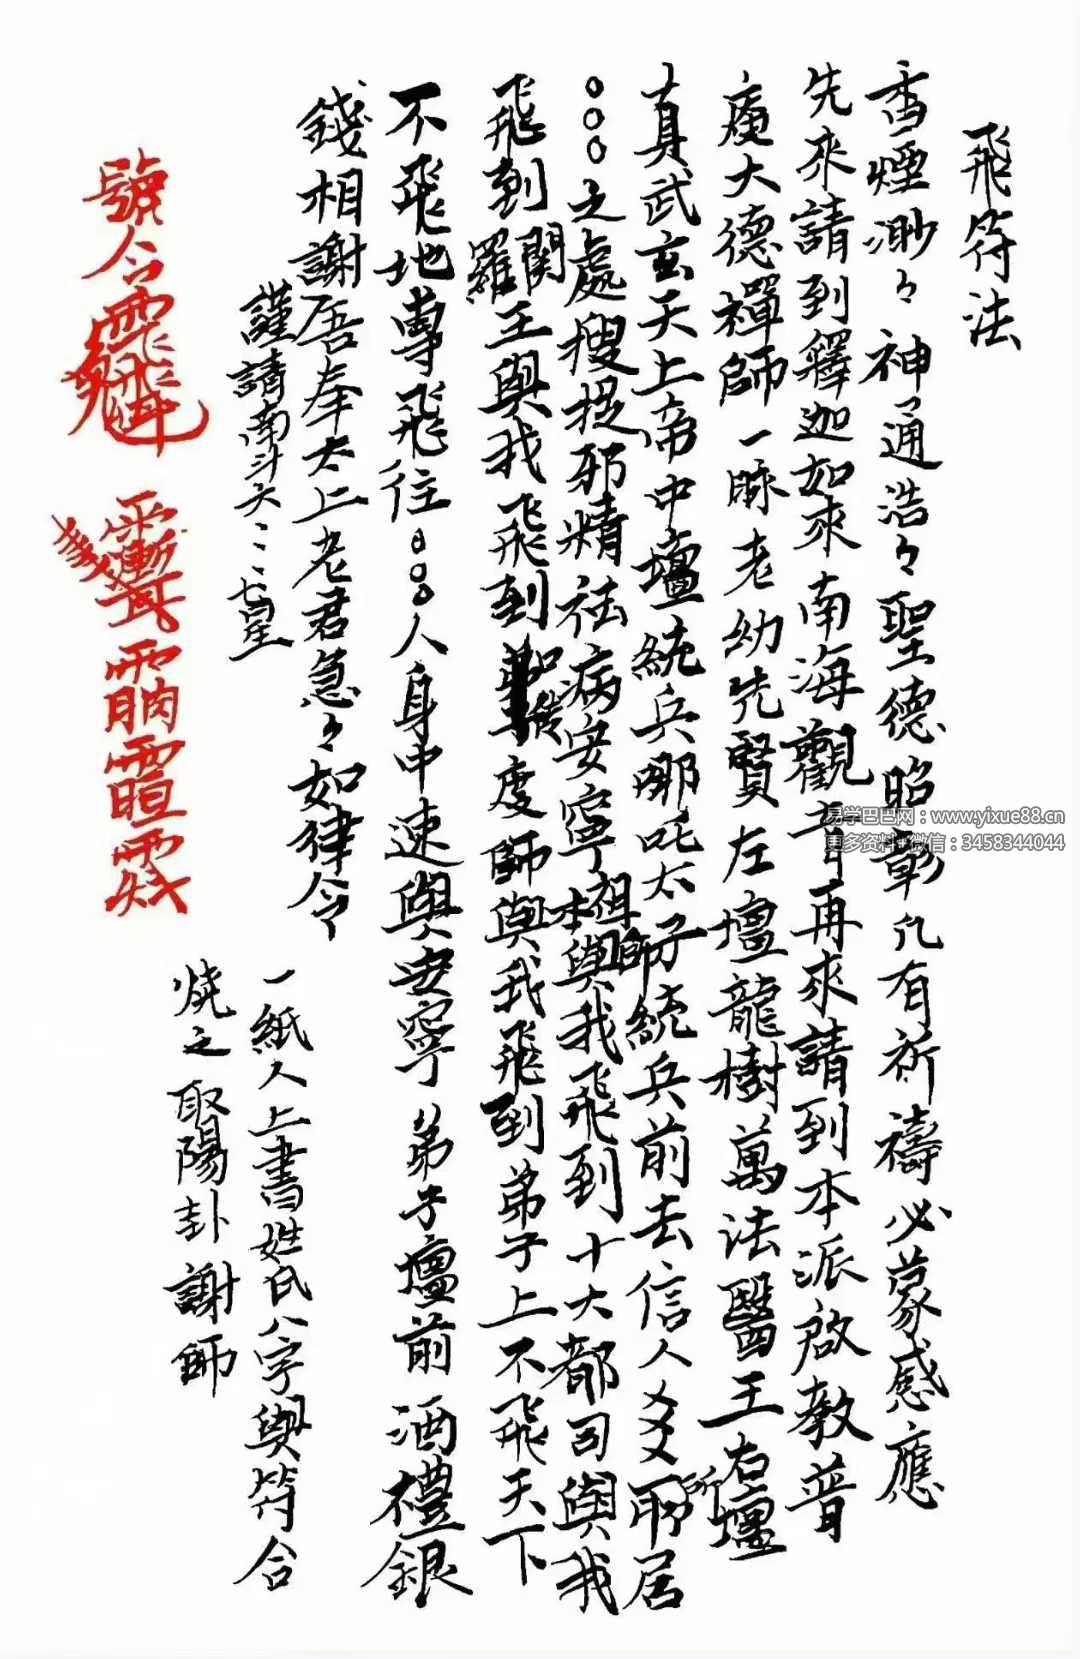 飛符法
香煙渺々神通浩々聖德昭彰凡有祈禱必蒙感應
先來請到釋迦如來南海觀音再來請到本派啟教普
庵大德禪師一脉老幼先賢左壇龍樹萬法醫王右壇
真武玄天上帝中壇統兵哪吒太子統兵前去信人㸚所居
○○○之處搜捉邪精祛病安寧本祖師與我飛到十大都司與我
飛到閻羅王與我飛到和傳度師與我飛到弟子上不飛天下
不飛地專飛往○○○人身中速與安寧弟子壇前酒禮銀
錢相謝吾奉太上老君急々如律令
謹請南斗六：：七星
號令
一紙人上書姓氏八字與符合
燒之取陽卦謝師
易学巴巴网：www.yixue88.cn
更多资料+微信：3458344044